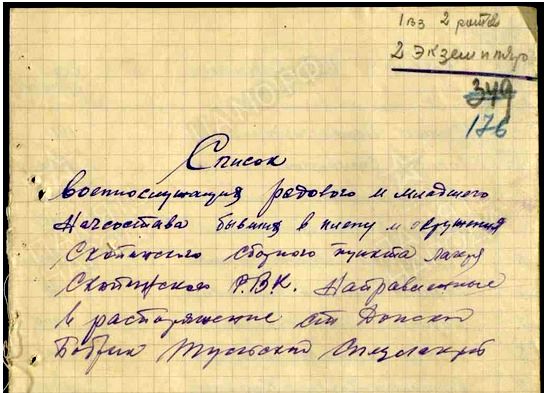 1 вз 2 роты
2 Экземпляр
349
176
Список
Военнослужащих рядового и младшего
Начсостава бывших в плену и окружения
Скопинского сборного пункта лагеря
Скопинского Р.В.К. Направленные
в распоряжение ст. Донской
Бобрик Тульской Спецлагерь